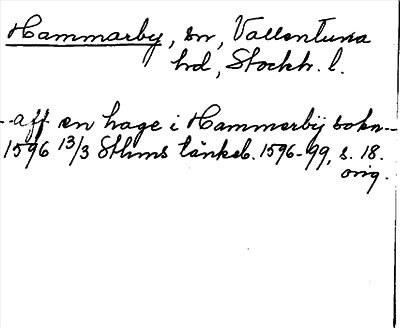 Hammarby, sn, Vallentuna
hd, Stockh. l.
--aff en hage i Hammerbij sokn--
1596 13/3 Sthms tänkeb. 1596-99, s. 18.
orig.